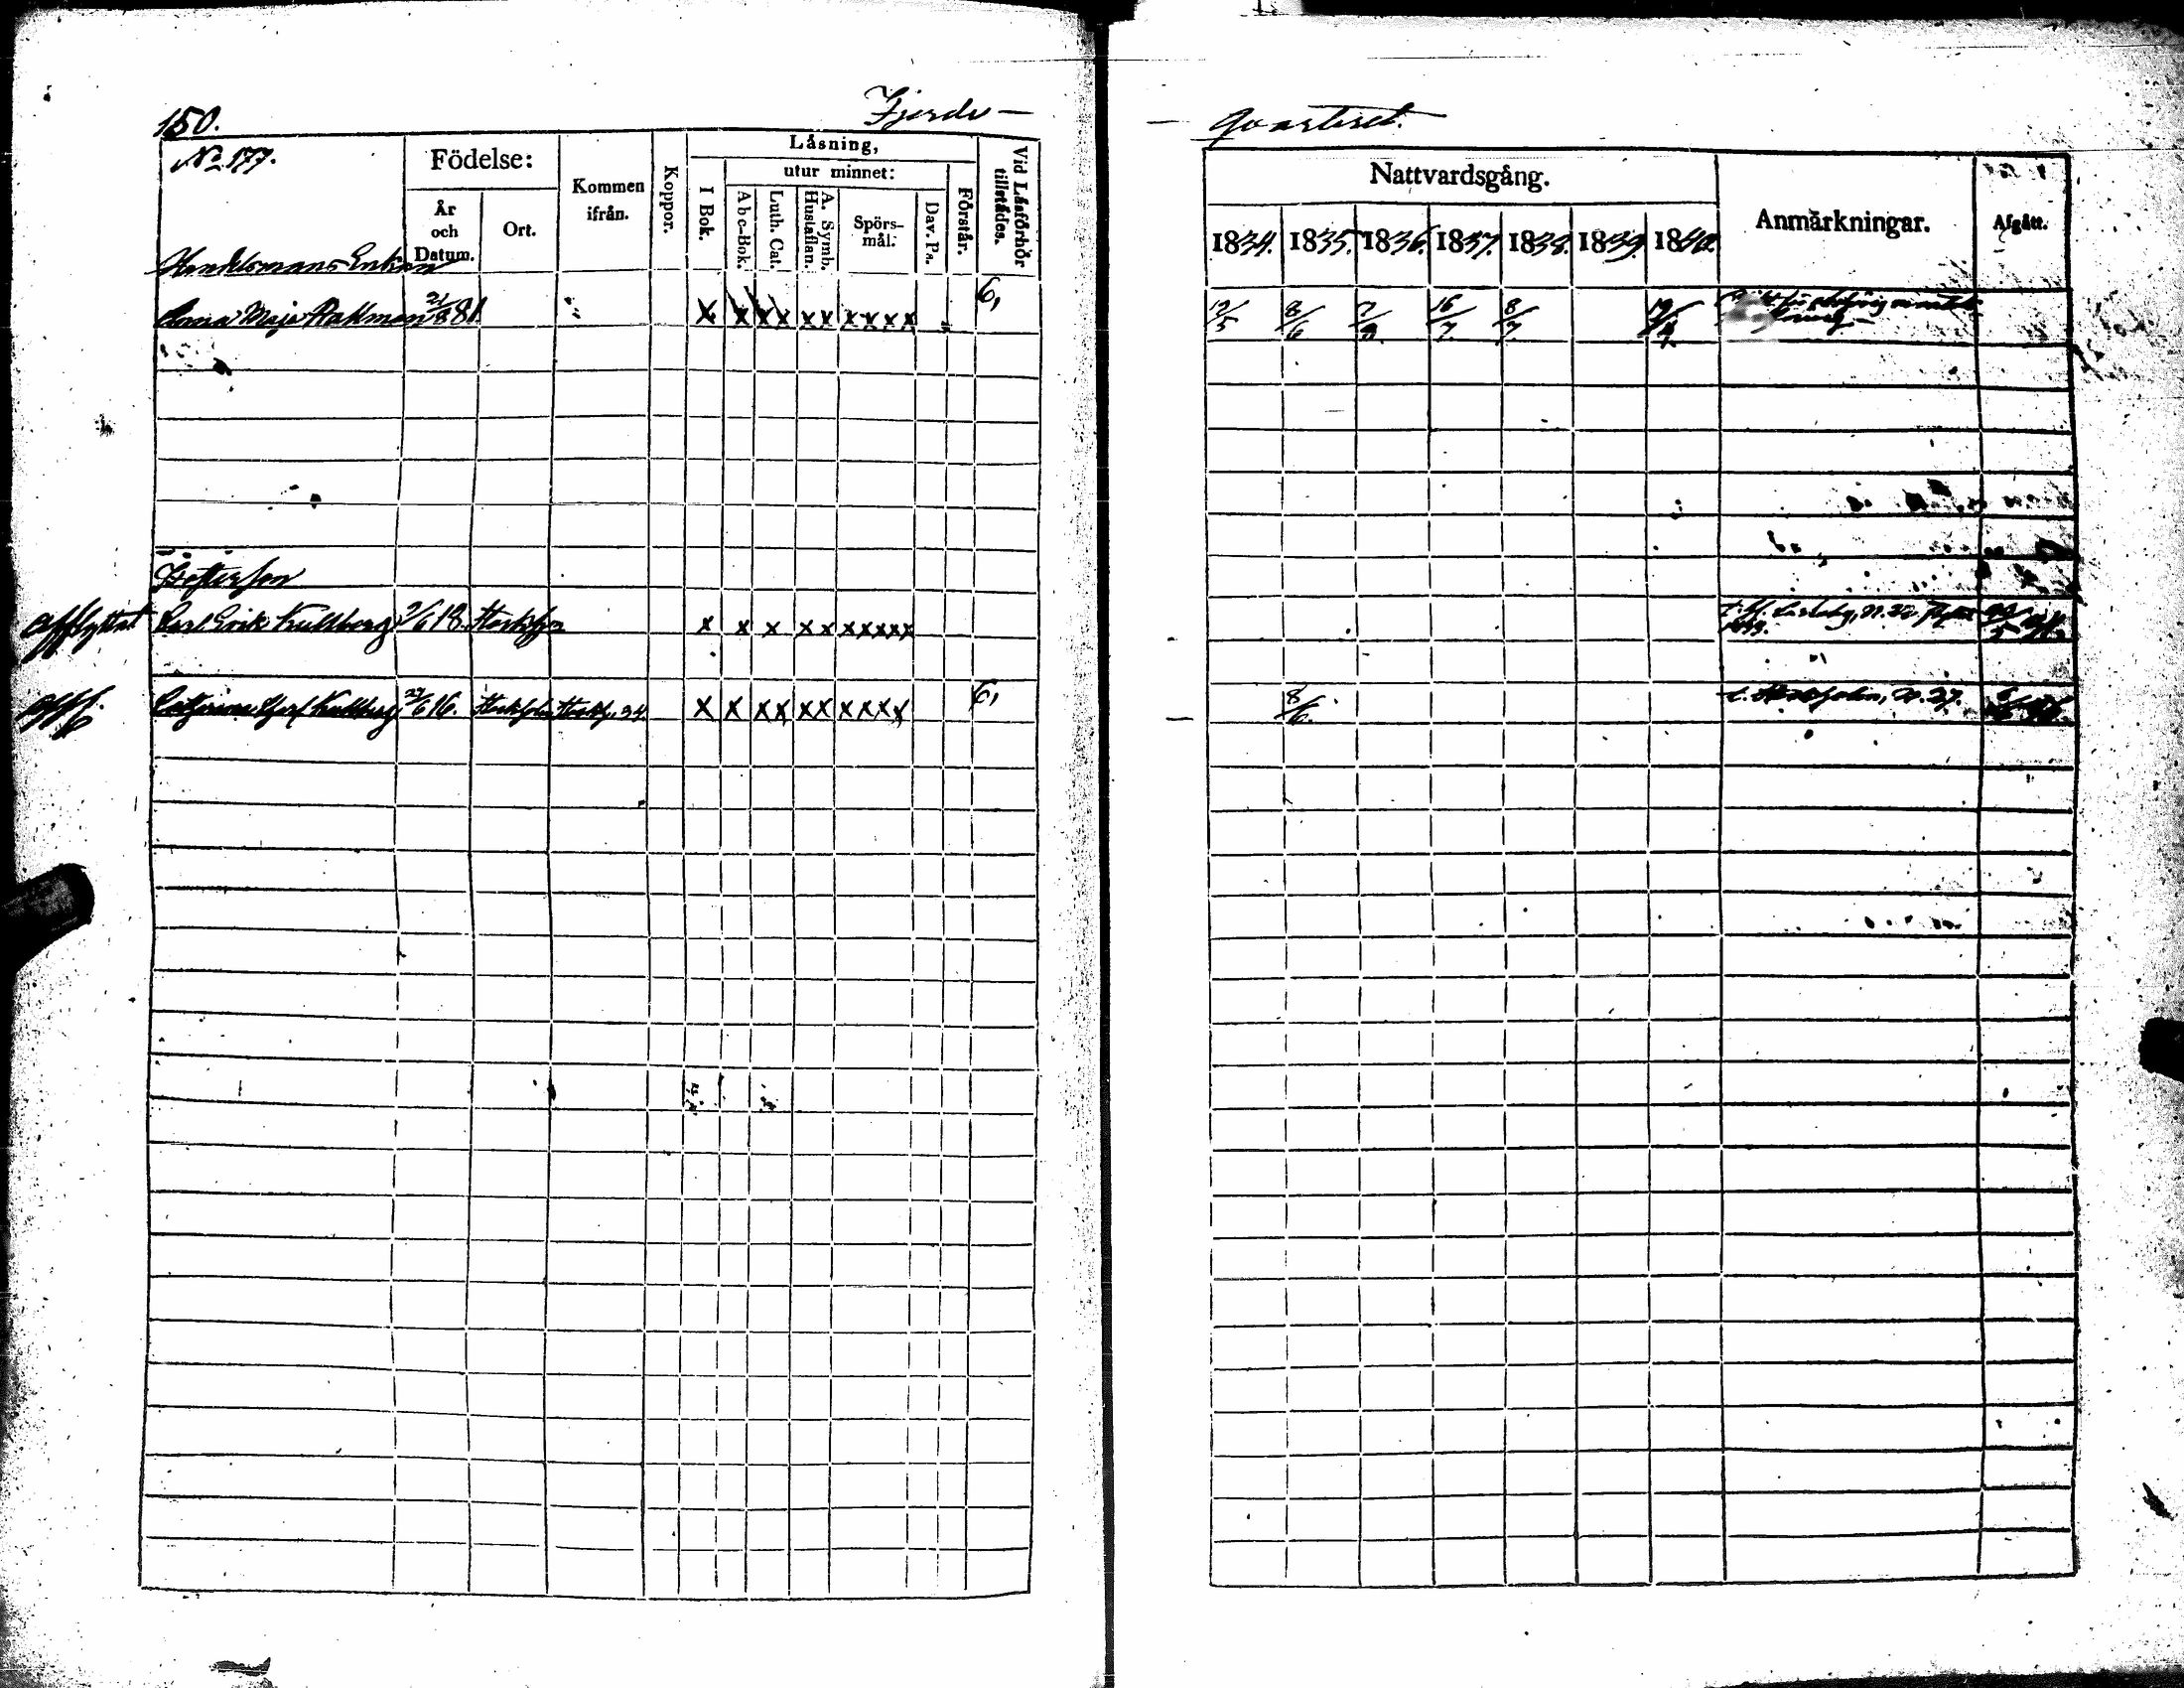 150.
Fjerde —
N:o 177.
Födelse:
År och Datum.
Ort.
Kommen ifrån.
Koppor.
Läsning,
I Bok.
utur minnet:
Abc-Bok.
Luth. Cat.
A. Symb. Hustaflan.
Spörs-mål.
Dav. Ps.
Förstår.
Vid Läsförhör tillstädes.
Handelsmans-Enkan
Anna Maja 21/8 81. x x x x x x x x x x 6,
Styfferson
afflyttat Carl Erik Kullberg 2/6 18. x x x x x x x x x x
aff. Kullberg 16. Stockholm Stockh. 34. x x x x x x x x x x 6,
— Quarteret.
Nattvardsgång.
1834. 1835. 1836. 1837. 1838. 1839. 1840.
Anmärkningar.
Afgått.
12/5 8/6 7/8 16/7. 8/7. 19/4.
8/6. t. Stockholm, N. 27.